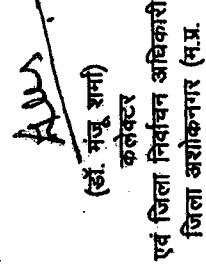 (डॉ. मंजू शर्मा)
कलेक्टर
एवं जिला निर्वाचन अधिकारी
जिला अशोकनगर (म.प्र.